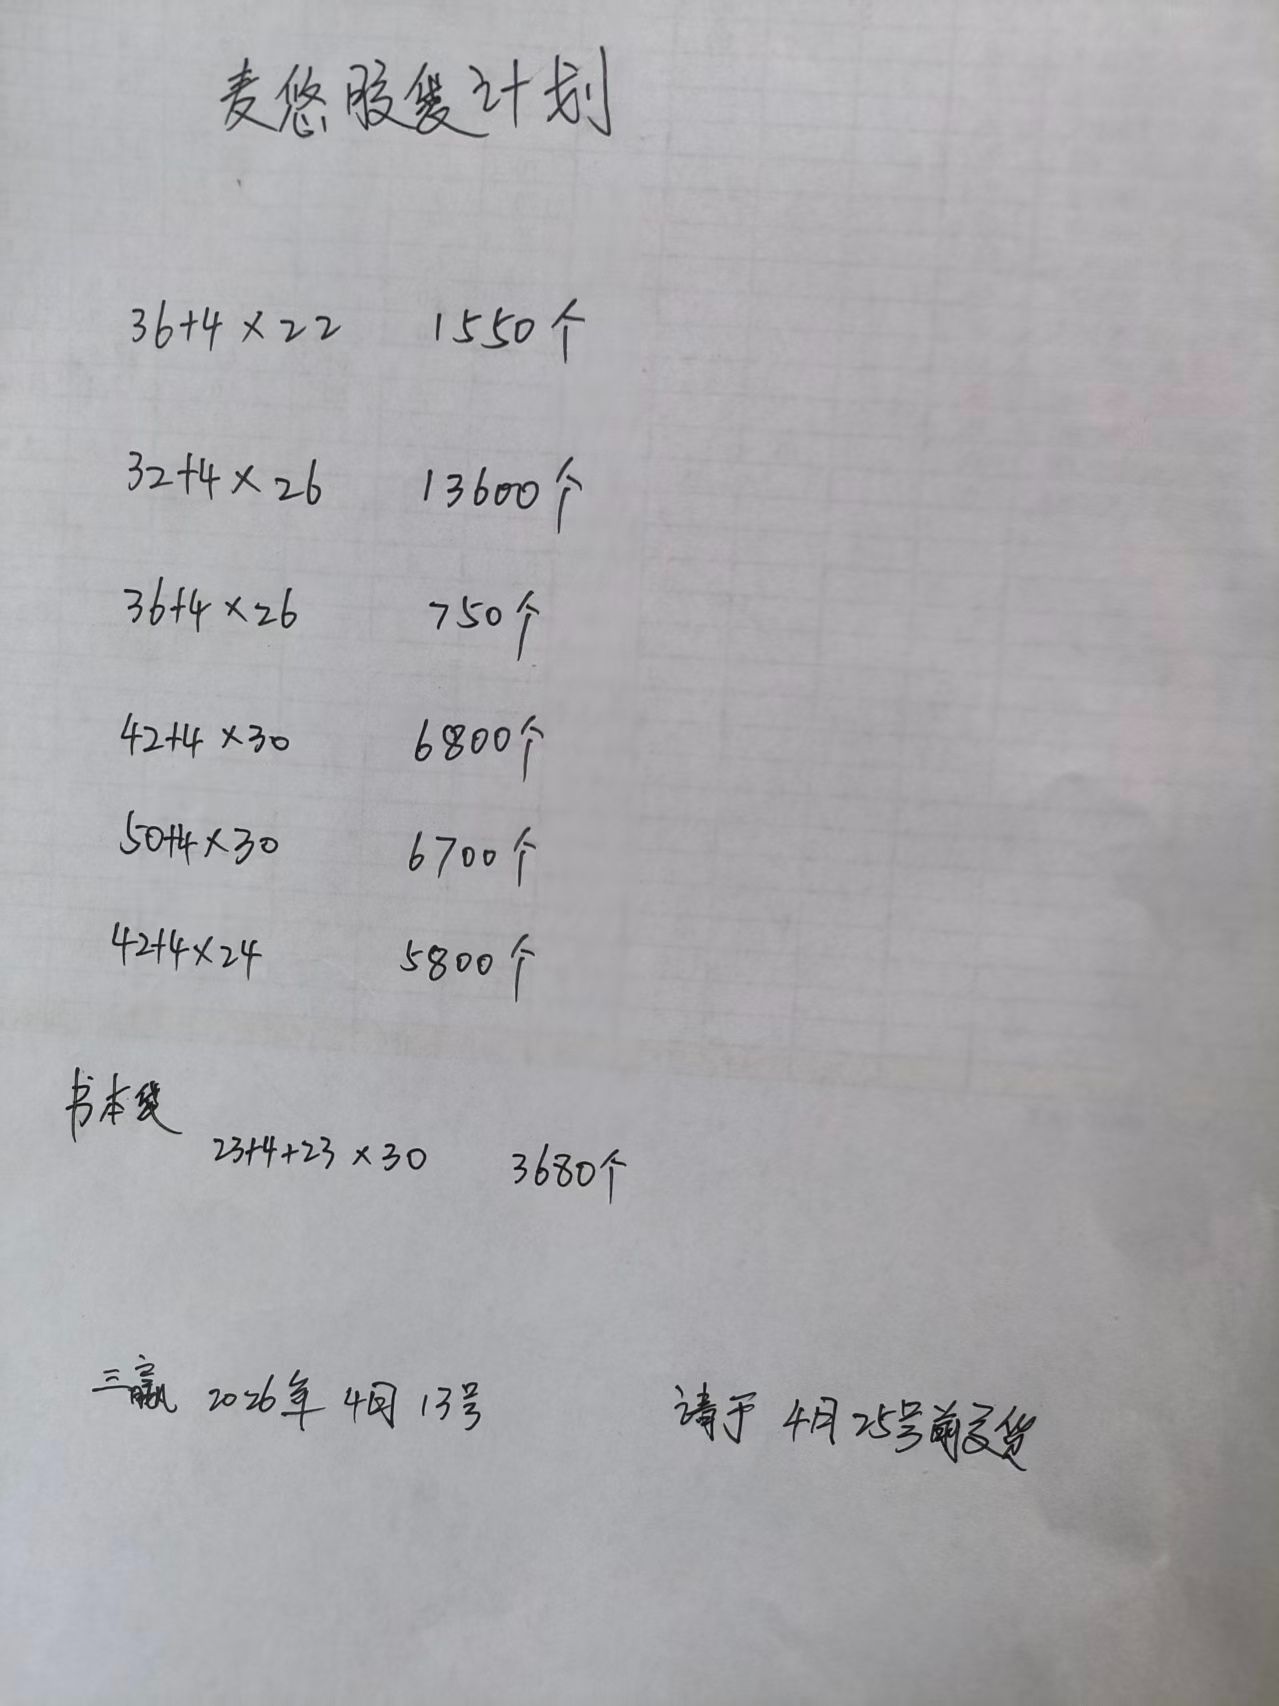 麦悠胶袋计划
36+4×22 1550个
32+4×26 13600个
36+4×26 750个
42+4×30 6800个
50+4×30 6700个
42+4×24 5800个
书本袋
23+4+23×30 3680个
三赢 2026年4月13号 请于4月25号前交货